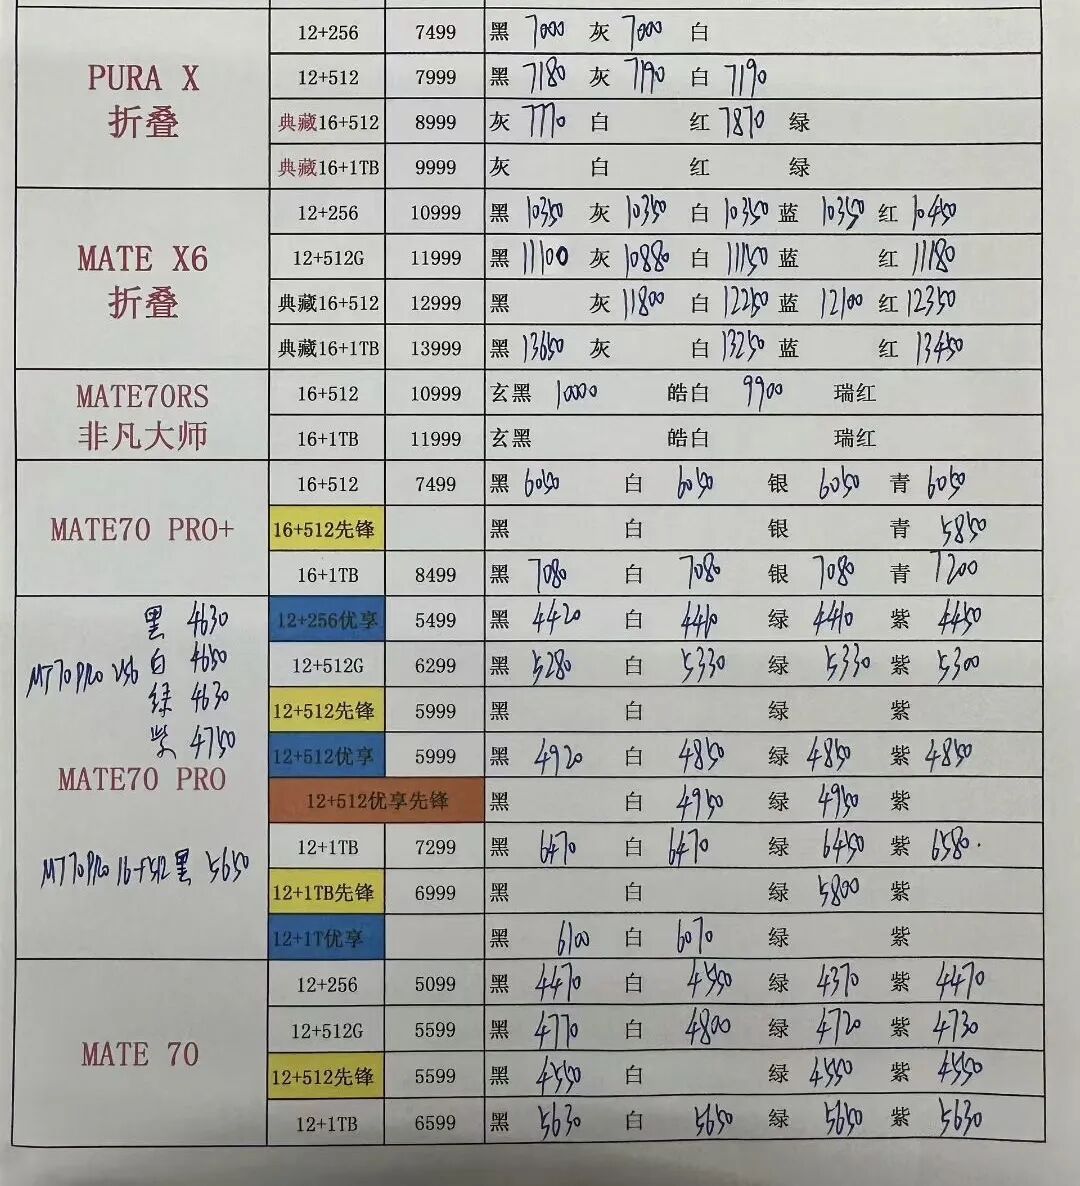 12+256 7499 黑 7000 灰 7000 白
PURA X
折叠
12+512 7999 黑 7180 灰 7190 白 7190
典藏16+512 8999 灰 7770 白 红 7870 绿
典藏16+1TB 9999 灰 白 红 绿
MATE X6
折叠
12+256 10999 黑 10350 灰 10350 白 10350 蓝 10350 红 10450
12+512G 11999 黑 11100 灰 10880 白 11150 蓝 红 11180
典藏16+512 12999 黑 灰 11800 白 12250 蓝 12100 红 12350
典藏16+1TB 13999 黑 13650 灰 白 13250 蓝 红 13450
MATE70RS
非凡大师
16+512 10999 玄黑 10000 皓白 9900 瑞红
16+1TB 11999 玄黑 皓白 瑞红
MATE70 PRO+
16+512 7499 黑 6050 白 6050 银 6050 青 6050
16+512先锋 黑 白 银 青 5850
16+1TB 8499 黑 7080 白 7080 银 7080 青 7200
黑 4630
MT70PRO 256 白 4650
绿 4630
紫 4750
MATE70 PRO
MT70PRO 16+512 黑 5650
12+256优享 5499 黑 4420 白 4410 绿 4410 紫 4450
12+512G 6299 黑 5280 白 5330 绿 5330 紫 5300
12+512先锋 5999 黑 白 绿 紫
12+512优享 5999 黑 4920 白 4850 绿 4850 紫 4850
12+512优享先锋 黑 白 4950 绿 4950 紫
12+1TB 7299 黑 6470 白 6470 绿 6450 紫 6580
12+1TB先锋 6999 黑 白 绿 5800 紫
12+1T优享 黑 6100 白 6070 绿 紫
MATE 70
12+256 5099 黑 4470 白 4550 绿 4370 紫 4470
12+512G 5599 黑 4770 白 4800 绿 4720 紫 4730
12+512先锋 5599 黑 4550 白 绿 4550 紫 4550
12+1TB 6599 黑 5630 白 5650 绿 5650 紫 5630